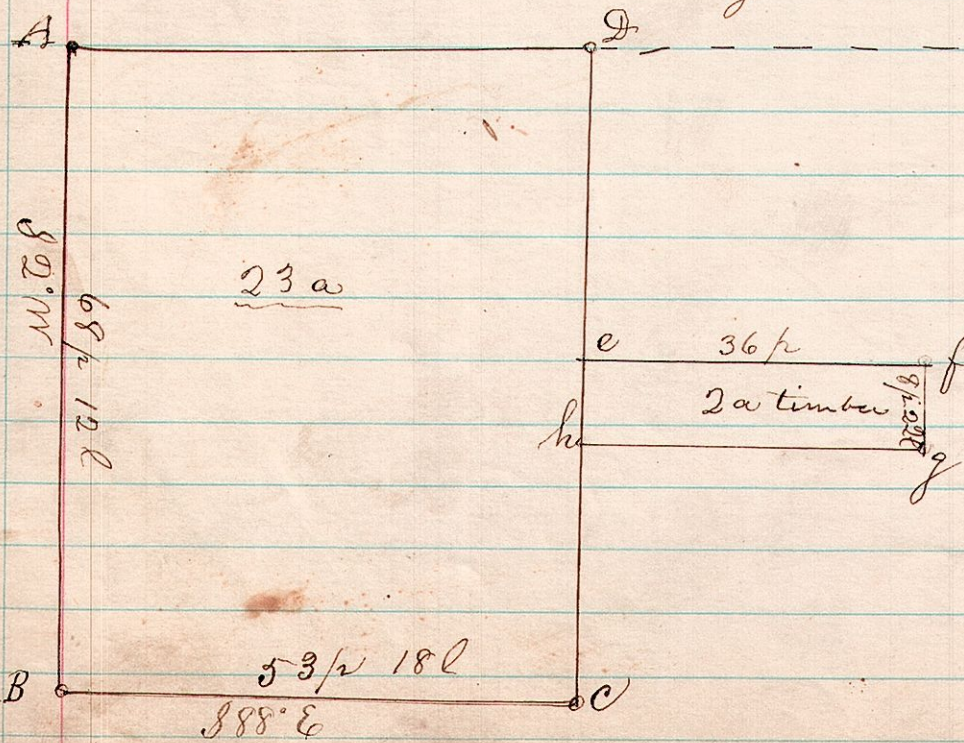 A
D
S 2° W
68 p 12 l
23 a
e
36 p
f
2 a timber
8 p 22 l
h
g
53 p 18 l
B
C
S 88° E